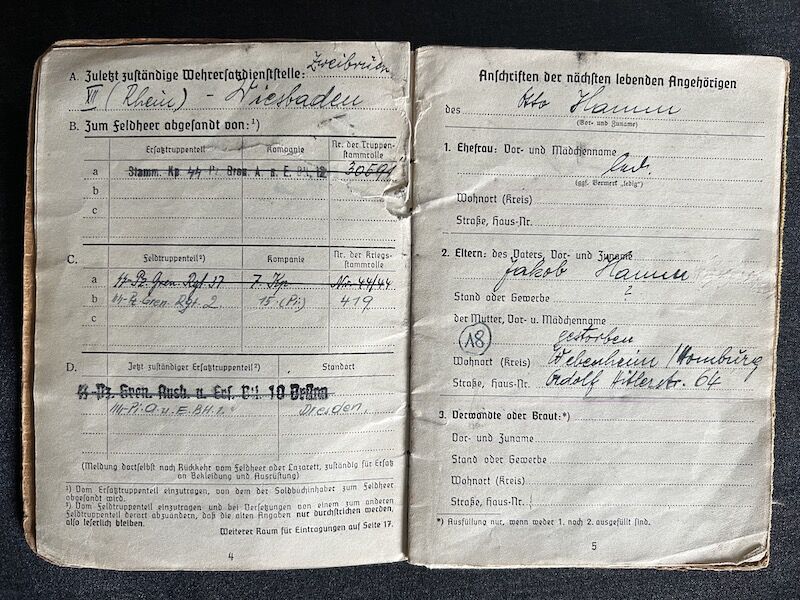 A. Zuletzt zuständige Wehrersatzdienststelle: Zweibrücken
XII (Rhein) - Wiesbaden
B. Zum Feldheer abgesandt von:¹)
Ersatztruppenteil Kompanie Nr. der Truppen-
stammrolle
a Stamm. Kp. ᛋᛋ Pi. A. u. E. 30594
b
c
C. Feldtruppenteil²) Kompanie Nr. der Kriegs-
stammrolle
a ᛋᛋ-Pz. Gren. Rgt. 37 7. Kp. Nr. 44/44
b ᛋᛋ-Pz. Gren. Rgt. 2. 15. (Pi.) 419
c
D. Jetzt zuständiger Ersatztruppenteil²) Standort
ᛋᛋ-Pz. Gren. Ausb. u. Ers. Btl. 10 Brünn
ᛋᛋ-Pi. A. u. E. Btl. 1. Dresden.
(Meldung dortselbst nach Rückkehr vom Feldheer oder Lazarett, zuständig für Ersatz
an Bekleidung und Ausrüstung)
¹) Vom Ersatztruppenteil einzutragen, von dem der Soldbuchinhaber zum Feldheer
abgesandt wird.
²) Vom Feldtruppenteil einzutragen und bei Versetzungen von einem zum anderen
Feldtruppenteil derart abzuändern, daß die alten Angaben nur durchstrichen werden,
also leserlich bleiben.
Weiterer Raum für Eintragungen auf Seite 17.
4
Anschriften der nächsten lebenden Angehörigen
des Otto Hamm
(Vor- und Zuname)
1. Ehefrau: Vor- und Mädchenname
led.
(ggf. Vermerk „ledig")
Wohnort (Kreis)
Straße, Haus-Nr.
2. Eltern: des Vaters, Vor- und Zuname
Jakob Hamm
Stand oder Gewerbe ?
der Mutter, Vor- u. Mädchenname
gestorben
18
Wohnort (Kreis) Webenheim / Homburg
Straße, Haus-Nr. Adolf Hitlerstr. 64
3. Verwandte oder Braut:*)
Vor- und Zuname
Stand oder Gewerbe
Wohnort (Kreis)
Straße, Haus-Nr.
*) Ausfüllung nur, wenn weder 1. noch 2. ausgefüllt sind.
5